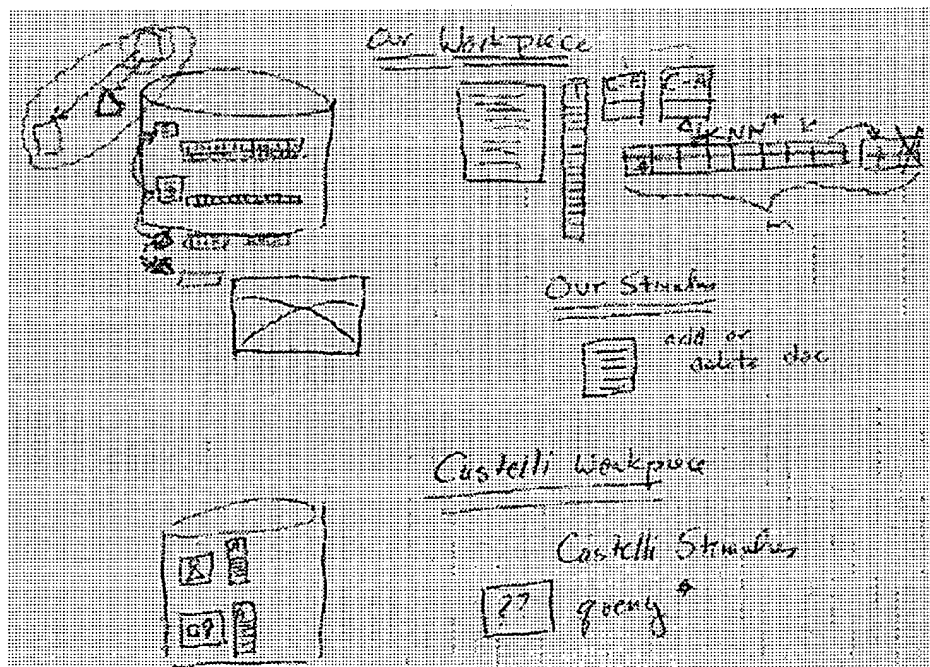 Our Workpiece
C-F C-A
KNN+
Our Stimulus
add or
delete doc
Castelli Workpiece
Castelli Stimulus
?? query